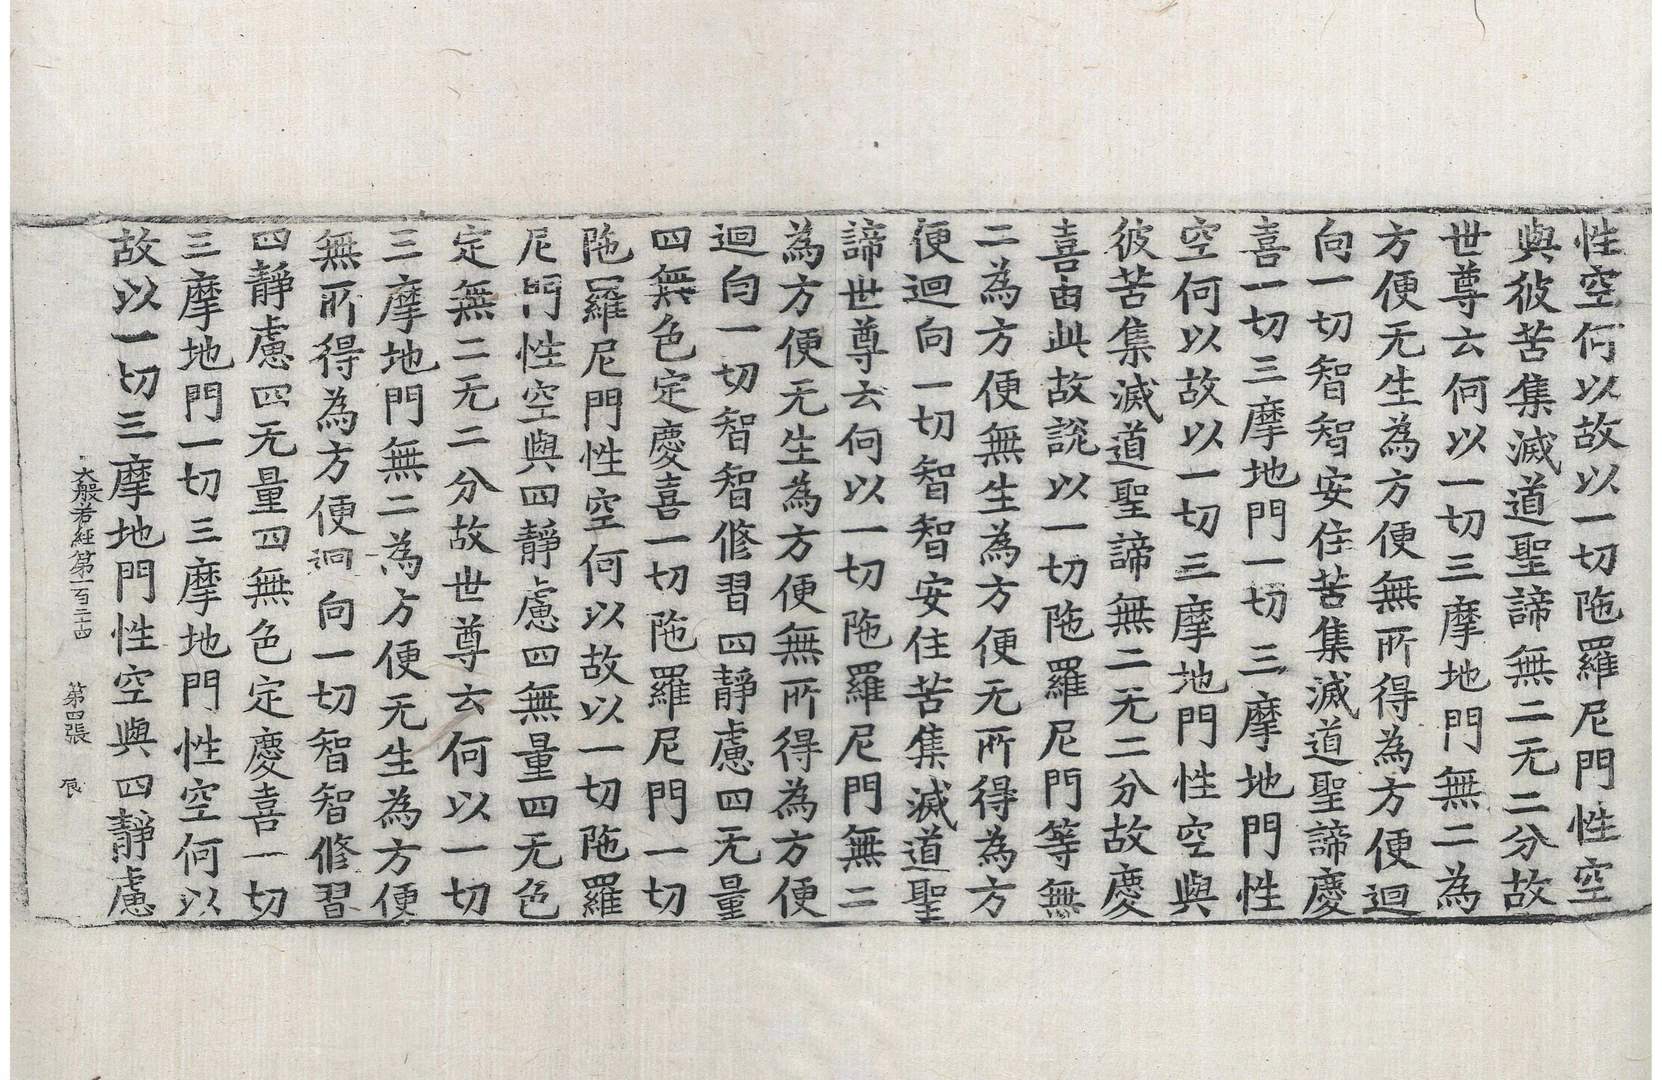 性空何以故以一切陁羅尼門性空
與彼苦集滅道聖諦無二无二分故
世尊云何以一切三摩地門無二為
方便无生為方便無所得為方便迴
向一切智智安住苦集滅道聖諦慶
喜一切三摩地門一切三摩地門性
空何以故以一切三摩地門性空與
彼苦集滅道聖諦無二无二分故慶
喜由此故說以一切陁羅尼門等無
二為方便無生為方便无所得為方
便迴向一切智智安住苦集滅道聖
諦世尊云何以一切陁羅尼門無二
為方便无生為方便無所得為方便
迴向一切智智修習四靜慮四无量
四無色定慶喜一切陁羅尼門一切
陁羅尼門性空何以故以一切陁羅
尼門性空與四靜慮四無量四无色
定無二无二分故世尊云何以一切
三摩地門無二為方便无生為方便
無所得為方便迴向一切智智修習
四靜慮四无量四無色定慶喜一切
三摩地門一切三摩地門性空何以
故以一切三摩地門性空與四靜慮
大般若經第一百二十四 第四張 辰